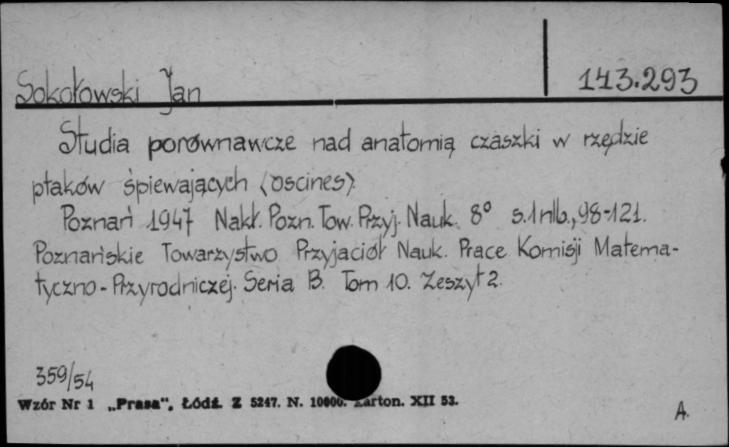 Sokołowski Jan
143.293
Studia porównawcze nad anatomią czaszki w rzędzie
ptaków śpiewających (oscines).
Poznań 1947 Nakł. Pozn. Tow. Przyj. Nauk. 8° s. 1 nlb., 98-121.
Poznańskie Towarzystwo Przyjaciół Nauk. Prace Komisji Matema-
tyczno-Przyrodniczej. Seria B. Tom 10. Zeszyt 2.
359/54
Wzór Nr 1 „Prasa", Łódź. Z 5247. N. 10000. Karton. XII 53.
A.